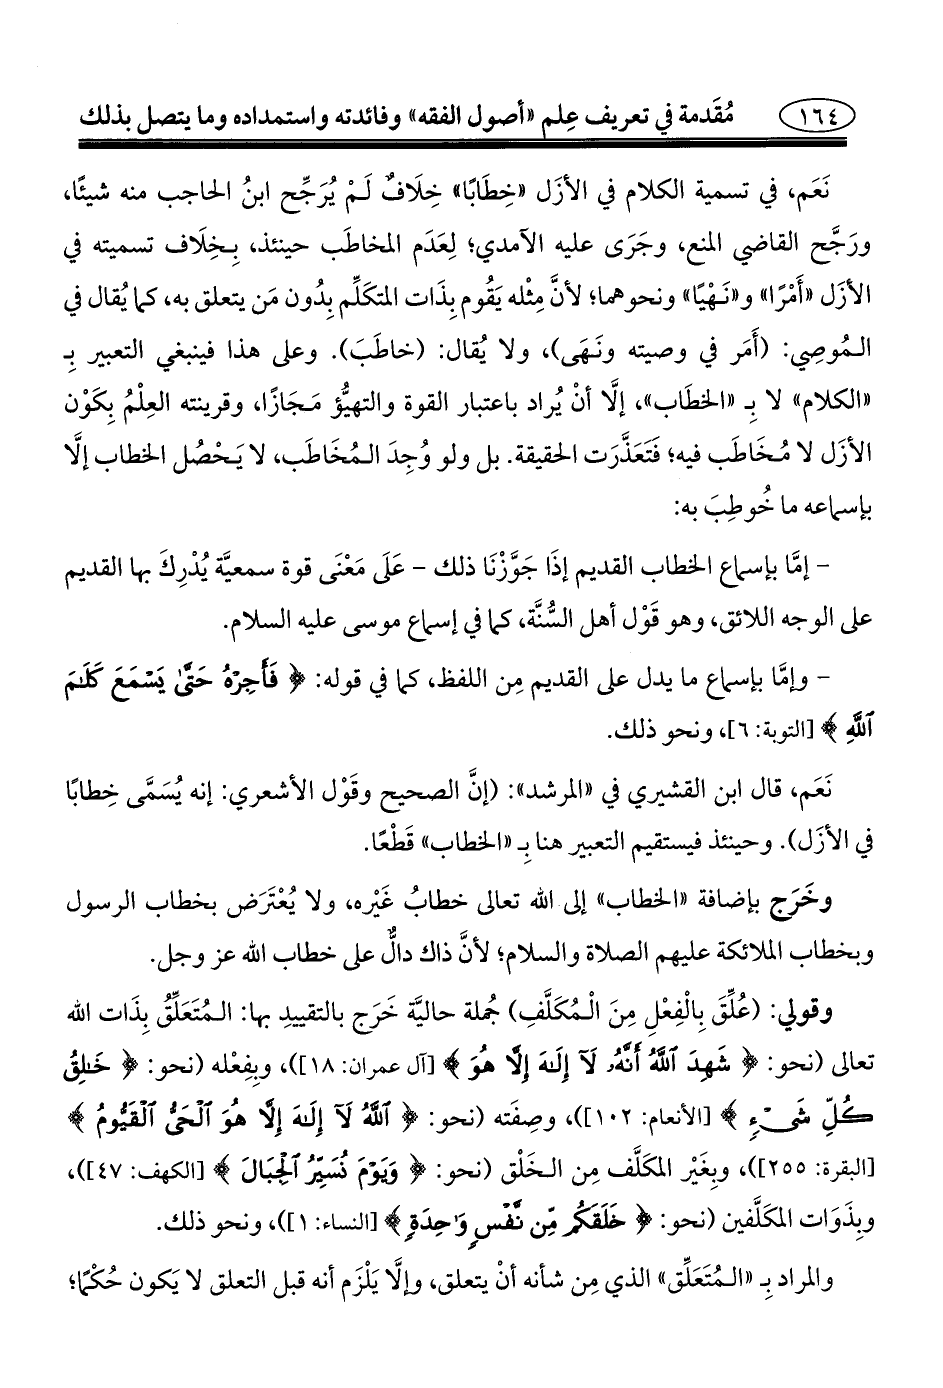 ١٦٤ مُقَدمة في تعريف عِلم «أصول الفقه» وفائدته واستمداده وما يتصل بذلك
نَعَم، في تسمية الكلام في الأزَل «خِطَابًا» خِلَافٌ لَمْ يُرَجِّح ابنُ الحاجب منه شيئًا،
ورَجَّح القاضي المنع، وجَرَى عليه الآمدي؛ لِعَدَم المخاطَب حينئذ، بِخِلَاف تسميته في
الأزَل «أَمْرًا» و«نَهْيًا» ونحوهما؛ لأنَّ مِثْله يَقُوم بِذَات المتكلِّم بِدُون مَن يتعلق به، كما يُقال في
الـمُوصِي: (أَمَر في وصيته ونَهَى)، ولا يُقال: (خاطَبَ). وعلى هذا فينبغي التعبير بِـ
«الكلام» لا بِـ «الخطاب»، إلَّا أنْ يُراد باعتبار القوة والتهيُّؤ مَجَازًا، وقرينته العِلْمُ بِكَوْن
الأزَل لا مُخاطَب فيه؛ فتَعَذَّرَت الحقيقة. بل ولو وُجِدَ الـمُخَاطَب، لا يَحْصُل الخطاب إلَّا
بإسماعه ما خُوطِبَ به:
- إمَّا بإسماع الخطاب القديم إذَا جَوَّزْنَا ذلك - عَلَى مَعْنَى قوة سمعيَّة يُدْرِكَ بها القديم
على الوجه اللائق، وهو قَوْل أهل السُّنَّة، كما في إسماع موسى عليه السلام.
- وإمَّا بإسماع ما يدل على القديم مِن اللفظ، كما في قوله: ﴿ فَأَجِرْهُ حَتَّىٰ يَسْمَعَ كَلَـٰمَ
ٱللَّهِ ﴾ [التوبة: ٦]، ونحو ذلك.
نَعَم، قال ابن القشيري في «المرشد»: (إنَّ الصحيح وقَوْل الأشعري: إنه يُسَمَّى خِطابًا
في الأزَل). وحينئذ فيستقيم التعبير هنا بِـ «الخطاب» قَطْعًا.
وخَرَج بإضافة «الخطاب» إلى الله تعالى خطابُ غَيْره، ولا يُعْتَرَض بخطاب الرسول
وبخطاب الملائكة عليهم الصلاة والسلام؛ لأنَّ ذاك دالٌّ على خطاب الله عز وجل.
وقولي: (عُلِّقَ بِالْفِعْلِ مِنَ الْـمُكَلَّفِ) جُملة حاليَّة خَرَج بالتقييدِ بها: الـمُتَعَلِّقُ بِذَات الله
تعالى (نحو: ﴿ شَهِدَ ٱللَّهُ أَنَّهُۥ لَآ إِلَـٰهَ إِلَّا هُوَ ﴾ [آل عمران: ١٨])، وبِفِعْله (نحو: ﴿ خَـٰلِقُ
كُلِّ شَىْءٍ ﴾ [الأنعام: ١٠٢])، وصِفَته (نحو: ﴿ ٱللَّهُ لَآ إِلَـٰهَ إِلَّا هُوَ ٱلْحَىُّ ٱلْقَيُّومُ ﴾
[البقرة: ٢٥٥])، وبِغَيْر المكلَّف مِن الـخَلْق (نحو: ﴿ وَيَوْمَ نُسَيِّرُ ٱلْجِبَالَ ﴾ [الكهف: ٤٧])،
وبِذَوَات المكَلَّفين (نحو: ﴿ خَلَقَكُم مِّن نَّفْسٍ وَٰحِدَةٍ ﴾ [النساء: ١])، ونحو ذلك.
والمراد بِـ «الـمُتَعَلِّق» الذي مِن شأنه أنْ يتعلق، وإلَّا يَلْزَم أنه قبل التعلق لا يَكون حُكْمًا؛